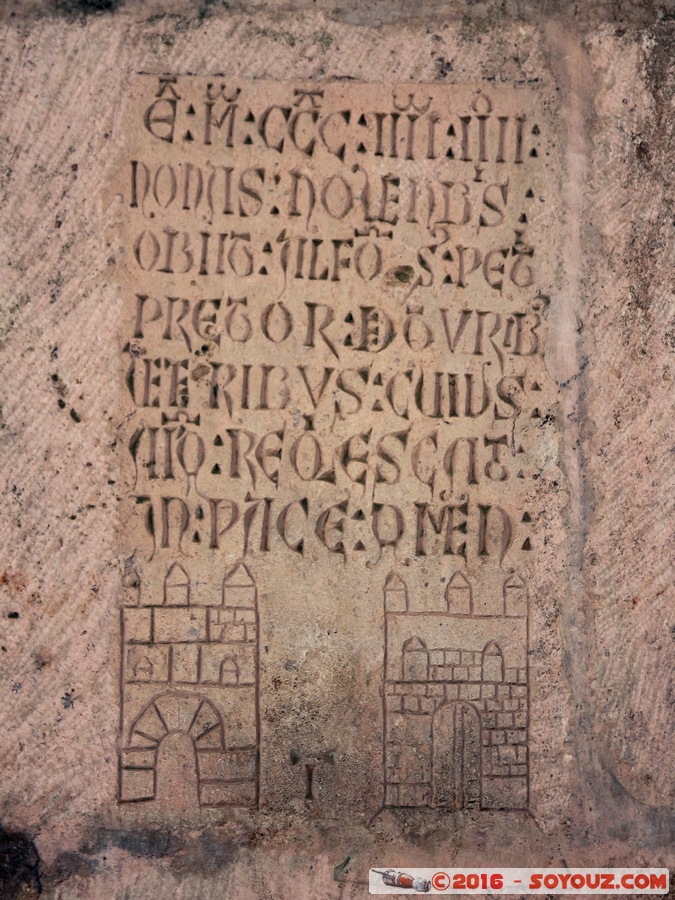 E : M : CCC : IIII : IIII :
NONAS : NOVENBS :
OBIIT : ALFO S : PET
PRETOR : D TVRIB
ETRIBVS : CVIVS :
REQIESCAT :
IN : PACE : AMEN :
I
©2016 - SOYOUZ.COM